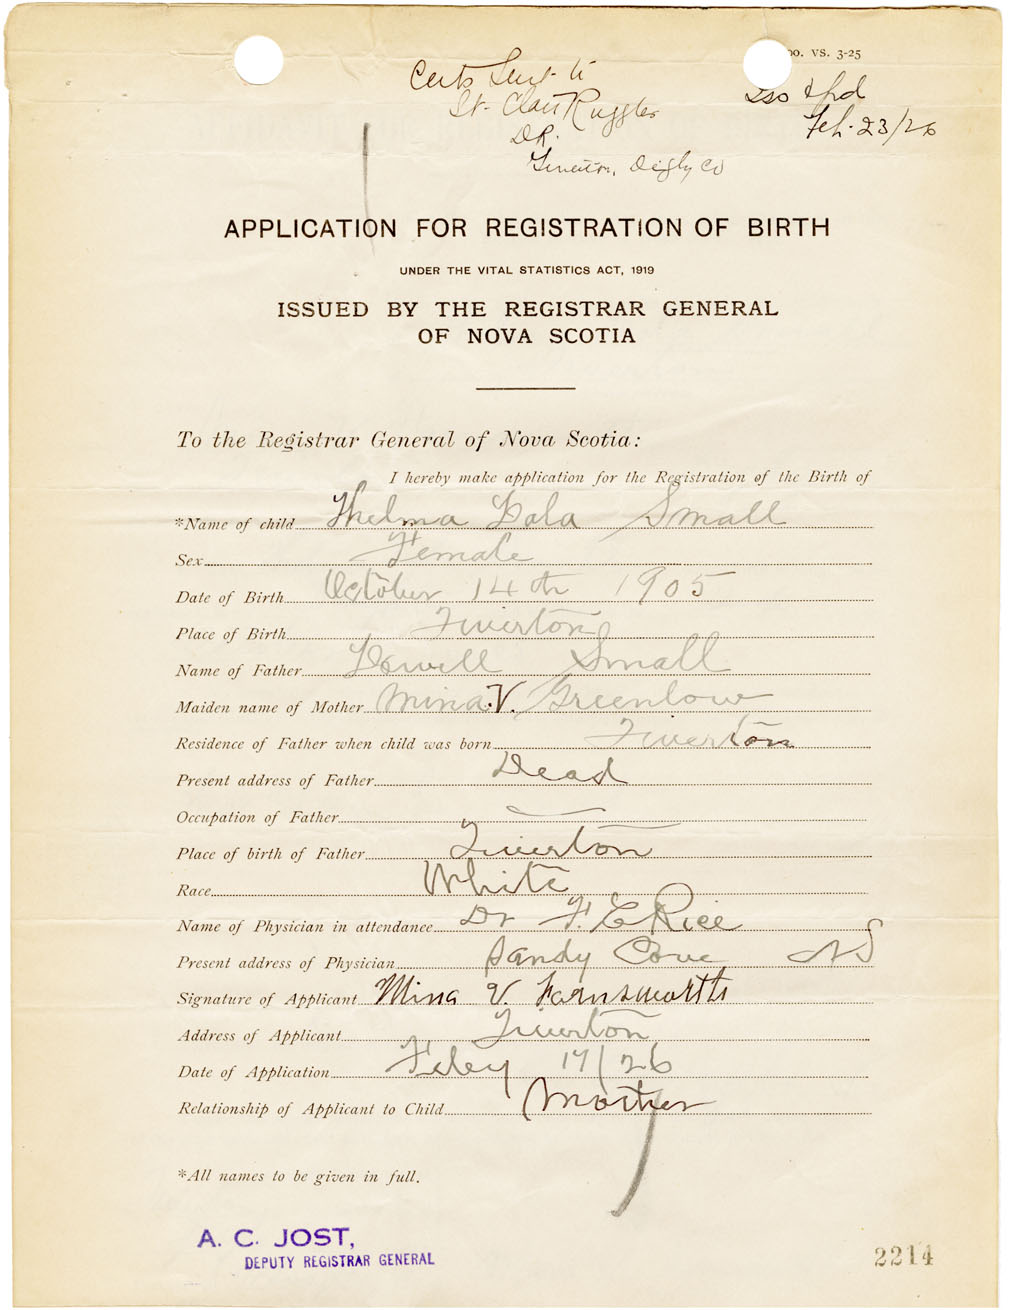 00. VS. 3-25
Certs Sent to
St. Clair Ruggles
D.R.
Tiverton, Digby Co
Iss &
Feb. 23/26
APPLICATION FOR REGISTRATION OF BIRTH
UNDER THE VITAL STATISTICS ACT, 1919
ISSUED BY THE REGISTRAR GENERAL
OF NOVA SCOTIA
To the Registrar General of Nova Scotia:
I hereby make application for the Registration of the Birth of
*Name of child Thelma Lola Small
Sex Female
Date of Birth October 14th 1905
Place of Birth Tiverton
Name of Father Lowell Small
Maiden name of Mother Mina.V. Greenlow
Residence of Father when child was born Tiverton
Present address of Father Dead
Occupation of Father —
Place of birth of Father Tiverton
Race White
Name of Physician in attendance Dr F. E Rice
Present address of Physician Sandy Cove NS
Signature of Applicant Mina V. Farnsworth
Address of Applicant Tiverton
Date of Application Feby 17/26
Relationship of Applicant to Child Mother
*All names to be given in full.
A. C. JOST,
DEPUTY REGISTRAR GENERAL
2214